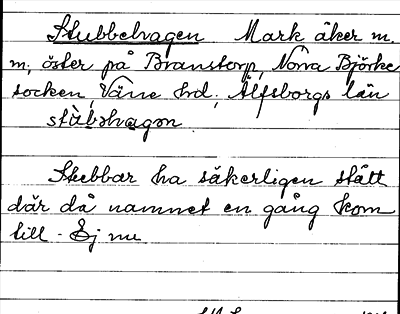 Stubbelvagen Mark åker m.
m, öster på Branstorp, Norra Björke
socken, Väne hd, Älfsborgs län
Stubbar ha säkerligen stått
där då namnet en gång kom
till. Ej nu